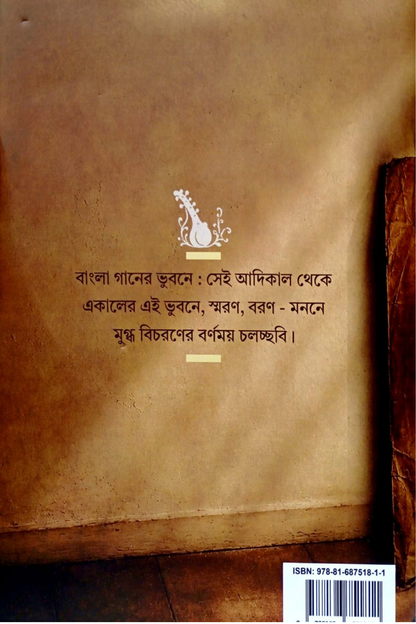 বাংলা গানের ভুবনে : সেই আদিকাল থেকে
একালের এই ভুবনে, স্মরণ, বরণ - মননে
মুগ্ধ বিচরণের বর্ণময় চলচ্ছবি।
ISBN: 978-81-687518-1-1